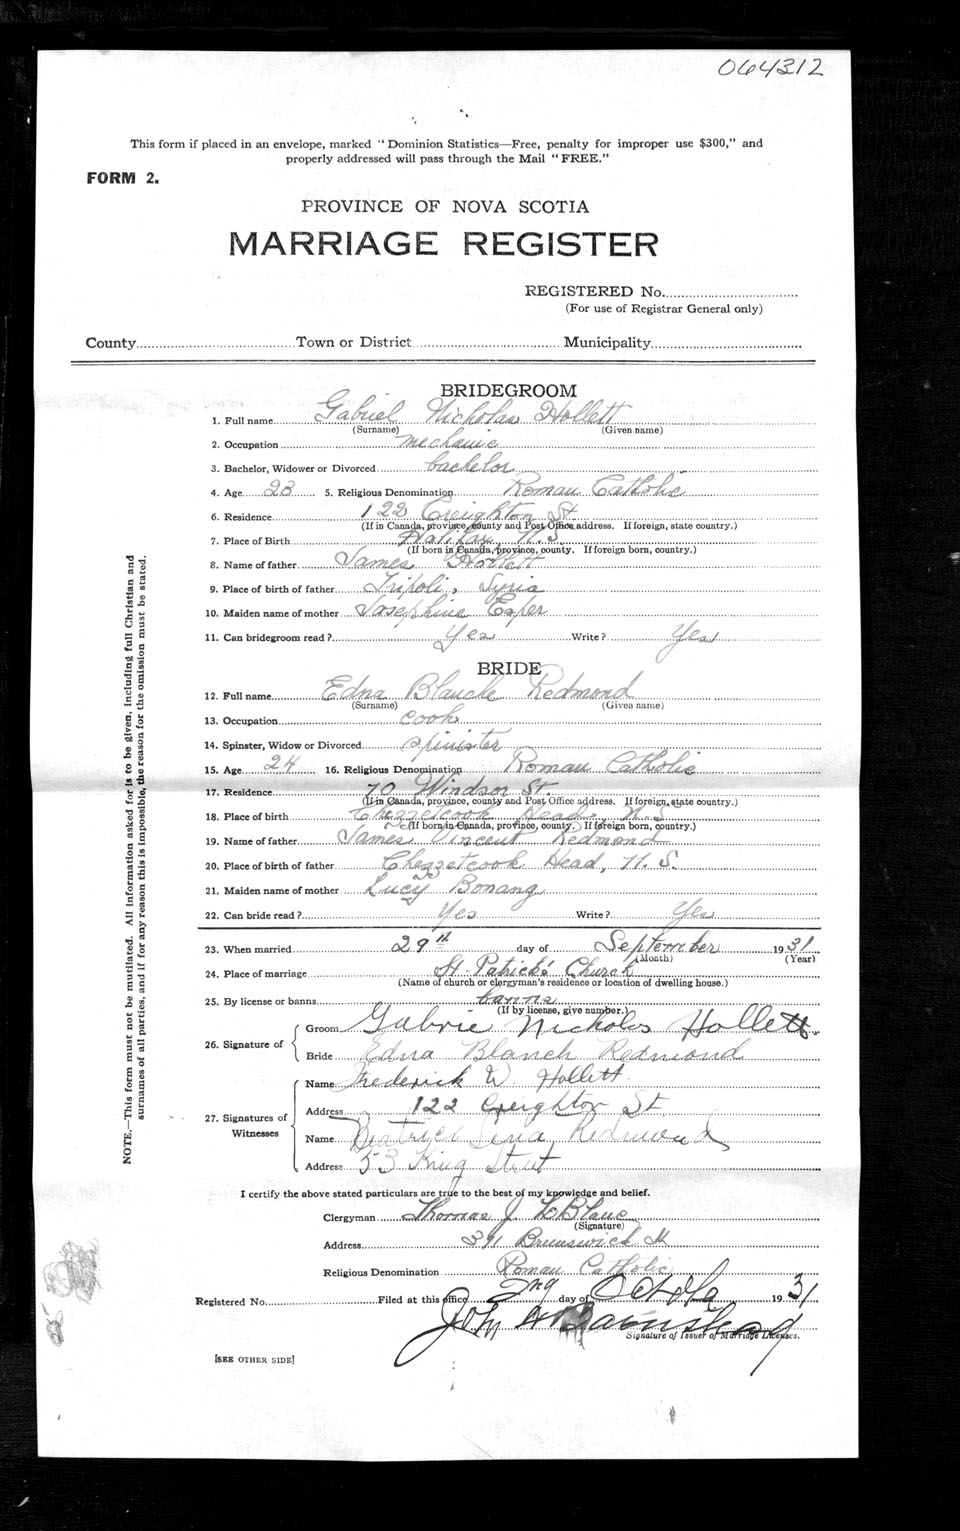 064312
This form if placed in an envelope, marked "Dominion Statistics—Free, penalty for improper use $300," and
properly addressed will pass through the Mail "FREE."
FORM 2.
PROVINCE OF NOVA SCOTIA
MARRIAGE REGISTER
REGISTERED No.
(For use of Registrar General only)
County Town or District Municipality
BRIDEGROOM
1. Full name Gabriel Nicholas Hollett
(Surname) (Given name)
2. Occupation mechanic
3. Bachelor, Widower or Divorced bachelor
4. Age 23 5. Religious Denomination Roman Catholic
6. Residence 122 Creighton St.
(If in Canada, province, county and Post Office address. If foreign, state country.)
7. Place of Birth Halifax, N.S.
(If born in Canada, province, county. If foreign born, country.)
8. Name of father James Hollett
9. Place of birth of father Tripoli, Syria
10. Maiden name of mother Josephine Esper
11. Can bridegroom read? Yes Write? Yes
BRIDE
12. Full name Edna Blanche Redmond
(Surname) (Given name)
13. Occupation cook
14. Spinster, Widow or Divorced spinister
15. Age 24 16. Religious Denomination Roman Catholic
17. Residence 70 Windsor St.
(If in Canada, province, county and Post Office address. If foreign, state country.)
18. Place of birth Chezzetcook Head, N.S
(If born in Canada, province, county. If foreign born, country.)
19. Name of father James Vincent Redmond
20. Place of birth of father Chezzetcook Head, N.S.
21. Maiden name of mother Lucy Bonang
22. Can bride read? Yes Write? Yes
23. When married 29th day of September 1931
(Month) (Year)
24. Place of marriage St. Patrick's Church
(Name of church or clergyman's residence or location of dwelling house.)
25. By license or banns banns
(If by license, give number.)
26. Signature of
Groom Gabrie Nicholas Hollett.
Bride Edna Blanch Redmond
27. Signatures of Witnesses
Name Frederick W. Hollett.
Address 122 Creighton St
Name Beatrice Lena Redmond
Address 53 King Street
I certify the above stated particulars are true to the best of my knowledge and belief.
Clergyman Thomas J. LeBlanc
(Signature)
Address Brunswick St
Religious Denomination Roman Catholic
Registered No. Filed at this office 2nd day of October 1931
John
Signature of Issuer of Marriage Licenses.
[SEE OTHER SIDE]
NOTE.—This form must not be mutilated. All information asked for is to be given, including full Christian and
surnames of all parties, and if for any reason this is impossible, the reason for the omission must be stated.